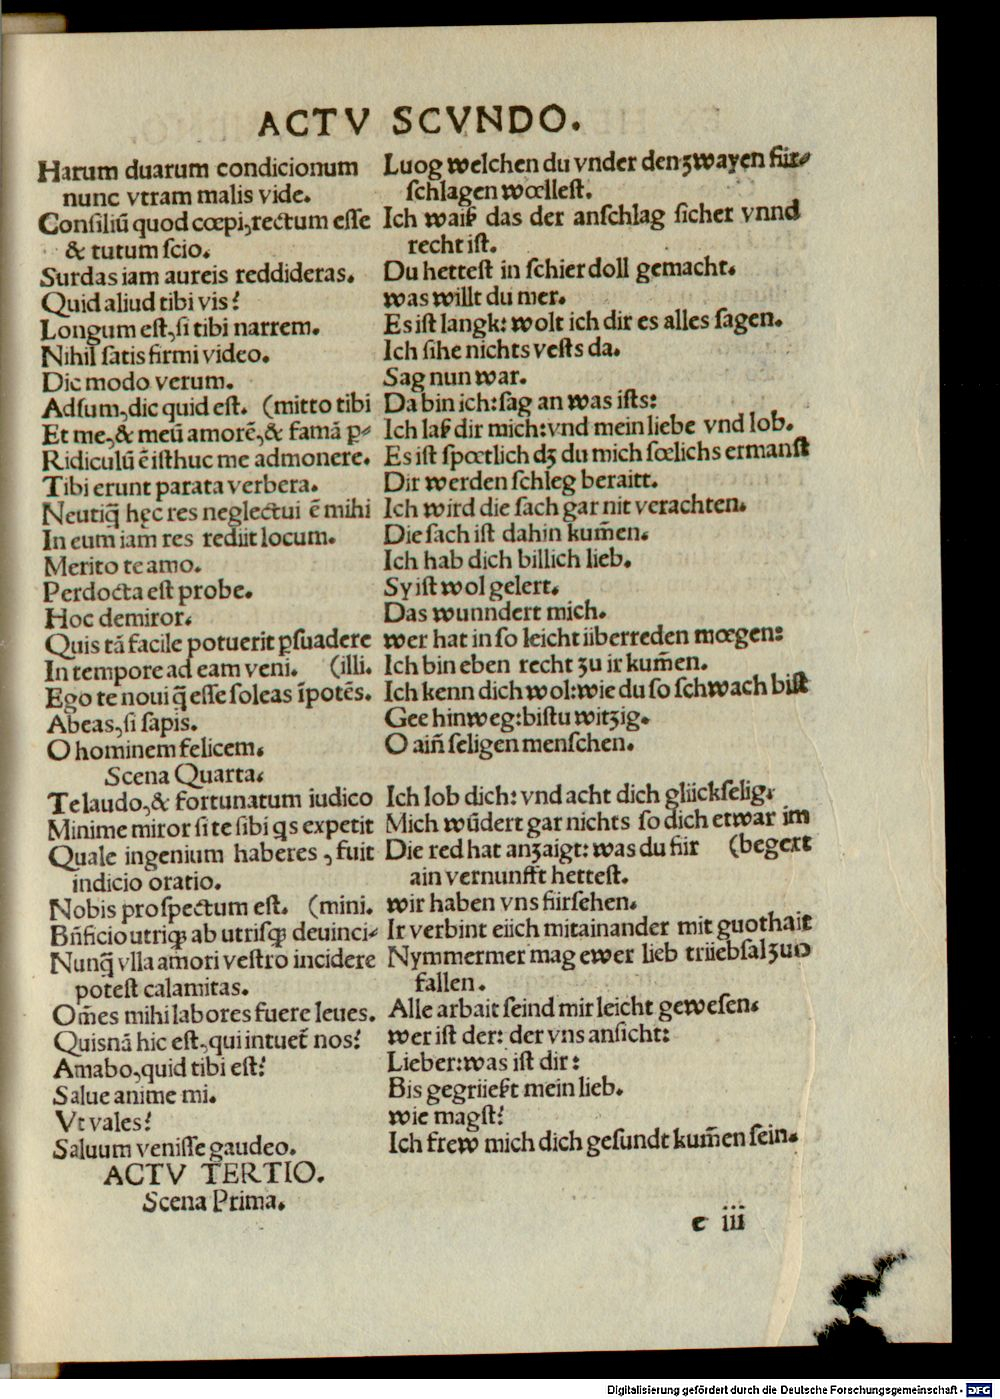 ACTV SCVNDO.
Harum duarum condicionum
nunc vtram malis vide.
Consiliū quod cœpi, rectum esse
& tutum scio.
Surdas iam aureis reddideras.
Quid aliud tibi vis?
Longum est, si tibi narrem.
Nihil satis firmi video.
Dic modo verum.
Adsum, dic quid est. (mitto tibi
Et me, & meū amorē, & famā ꝑ-
Ridiculū ē isthuc me admonere.
Tibi erunt parata verbera.
Neutiq̃ hęc res neglectui ē mihi
In eum iam res rediit locum.
Merito te amo.
Perdocta est probe.
Hoc demiror.
Quis tā facile potuerit ꝑsuadere
In tempore ad eam veni. (illi.
Ego te noui q̃ esse soleas īpotēs.
Abeas, si sapis.
O hominem felicem.
Scena Quarta.
Te laudo, & fortunatum iudico
Minime miror si te sibi qs expetit
Quale ingenium haberes, fuit
indicio oratio.
Nobis prospectum est. (mini.
Bn̄ficio utriqꝫ ab utrisqꝫ deuinci-
Nunq̃ vlla amori vestro incidere
potest calamitas.
Om̄es mihi labores fuere leues.
Quisnā hic est, qui intuet̃ nos?
Amabo, quid tibi est?
Salue anime mi.
Vt vales?
Saluum venisse gaudeo.
ACTV TERTIO.
Scena Prima.
Luog welchen du vnder den zwayen für-
schlagen wœllest.
Ich waiß das der anschlag sicher vnnd
recht ist.
Du hettest in schier doll gemacht.
was willt du mer.
Es ist langk: wolt ich dir es alles sagen.
Ich sihe nichts vests da.
Sag nun war.
Da bin ich: sag an was ists:
Ich laß dir mich: vnd mein liebe vnd lob.
Es ist spœtlich dz du mich sœlichs ermanst
Dir werden schleg beraitt.
Ich wird die sach gar nit verachten.
Die sach ist dahin kum̄en.
Ich hab dich billich lieb.
Sy ist wol gelert.
Das wunndert mich.
wer hat in so leicht überreden mœgen:
Ich bin eben recht zu ir kum̄en.
Ich kenn dich wol: wie du so schwach bist
Gee hinweg: bistu witzig.
O ain̄ seligen menschen.
Ich lob dich: vnd acht dich glückselig.
Mich wūdert gar nichts so dich etwar im
Die red hat anzaigt: was du für (begert
ain vernunfft hettest.
wir haben vns fürsehen.
Ir verbint eüch mitainander mit guothait
Nymmermer mag ewer lieb trüebsal zuo
fallen.
Alle arbait seind mir leicht gewesen.
wer ist der: der vns ansicht:
Lieber: was ist dir:
Bis gegrüeßt mein lieb.
wie magst?
Ich frew mich dich gesundt kum̄en sein.
c iii
Digitalisierung gefördert durch die Deutsche Forschungsgemeinschaft - DFG